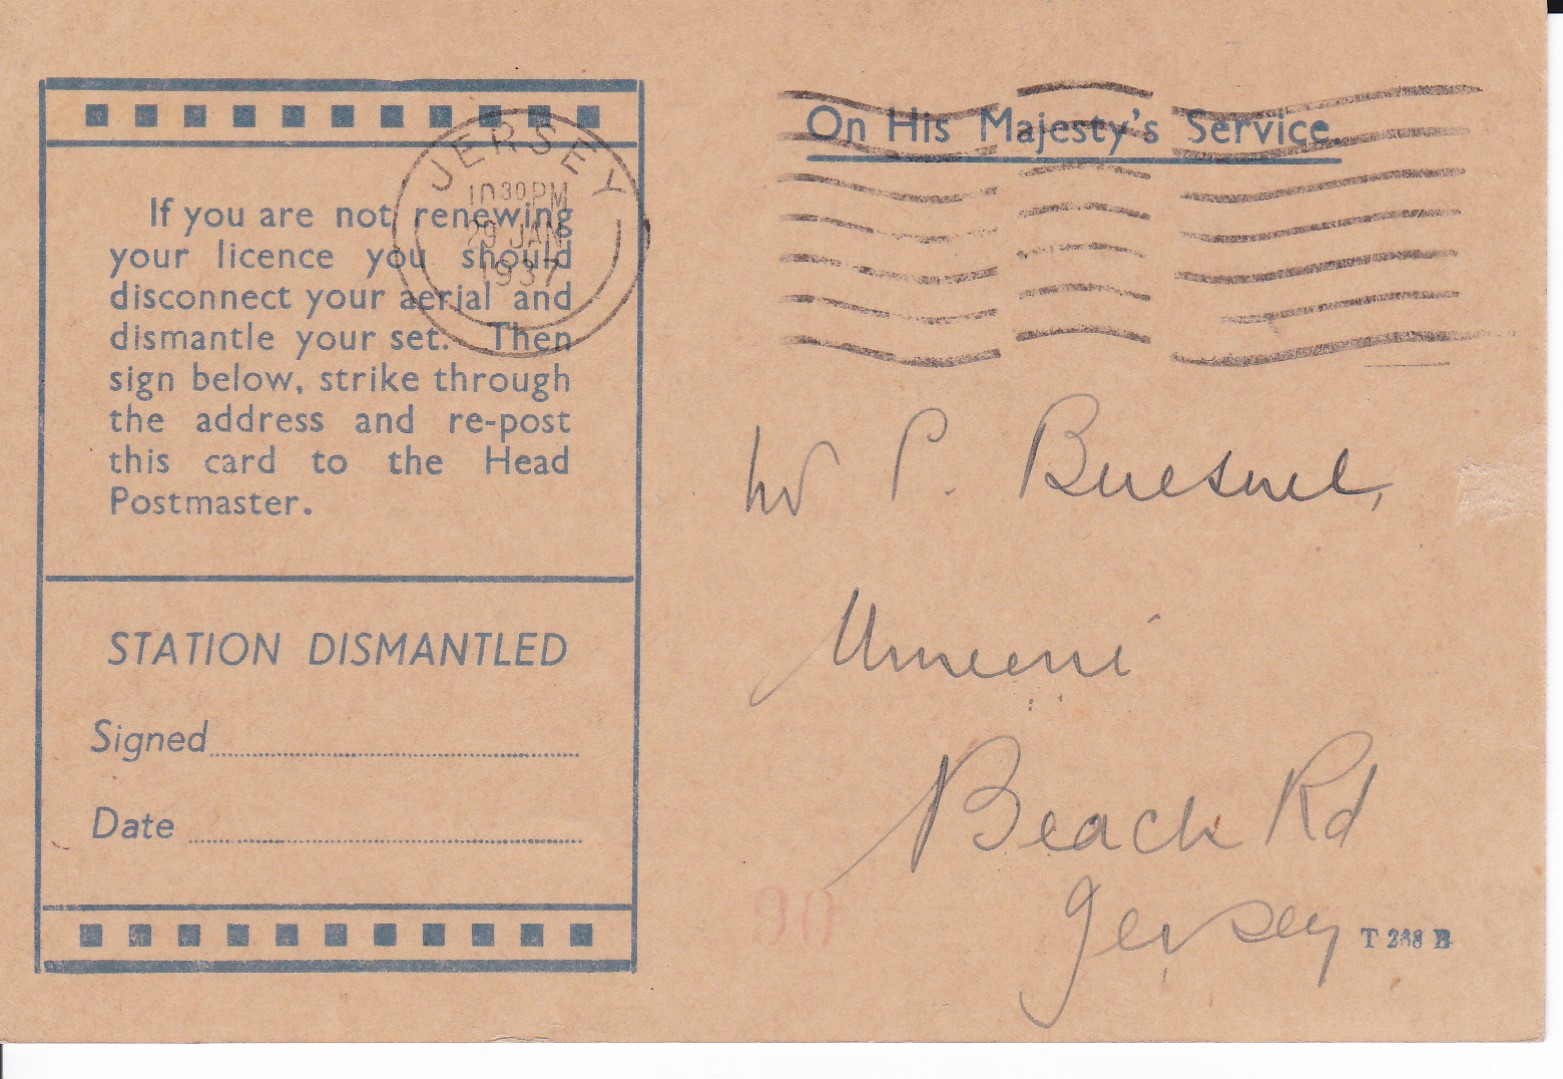 On His Majesty's Service.
JERSEY
10 30 PM
29 JAN
1937
If you are not renewing
your licence you should
disconnect your aerial and
dismantle your set. Then
sign below, strike through
the address and re-post
this card to the Head
Postmaster.
STATION DISMANTLED
Signed
Date
P.
Beach Rd
Jersey
T 288 B
90